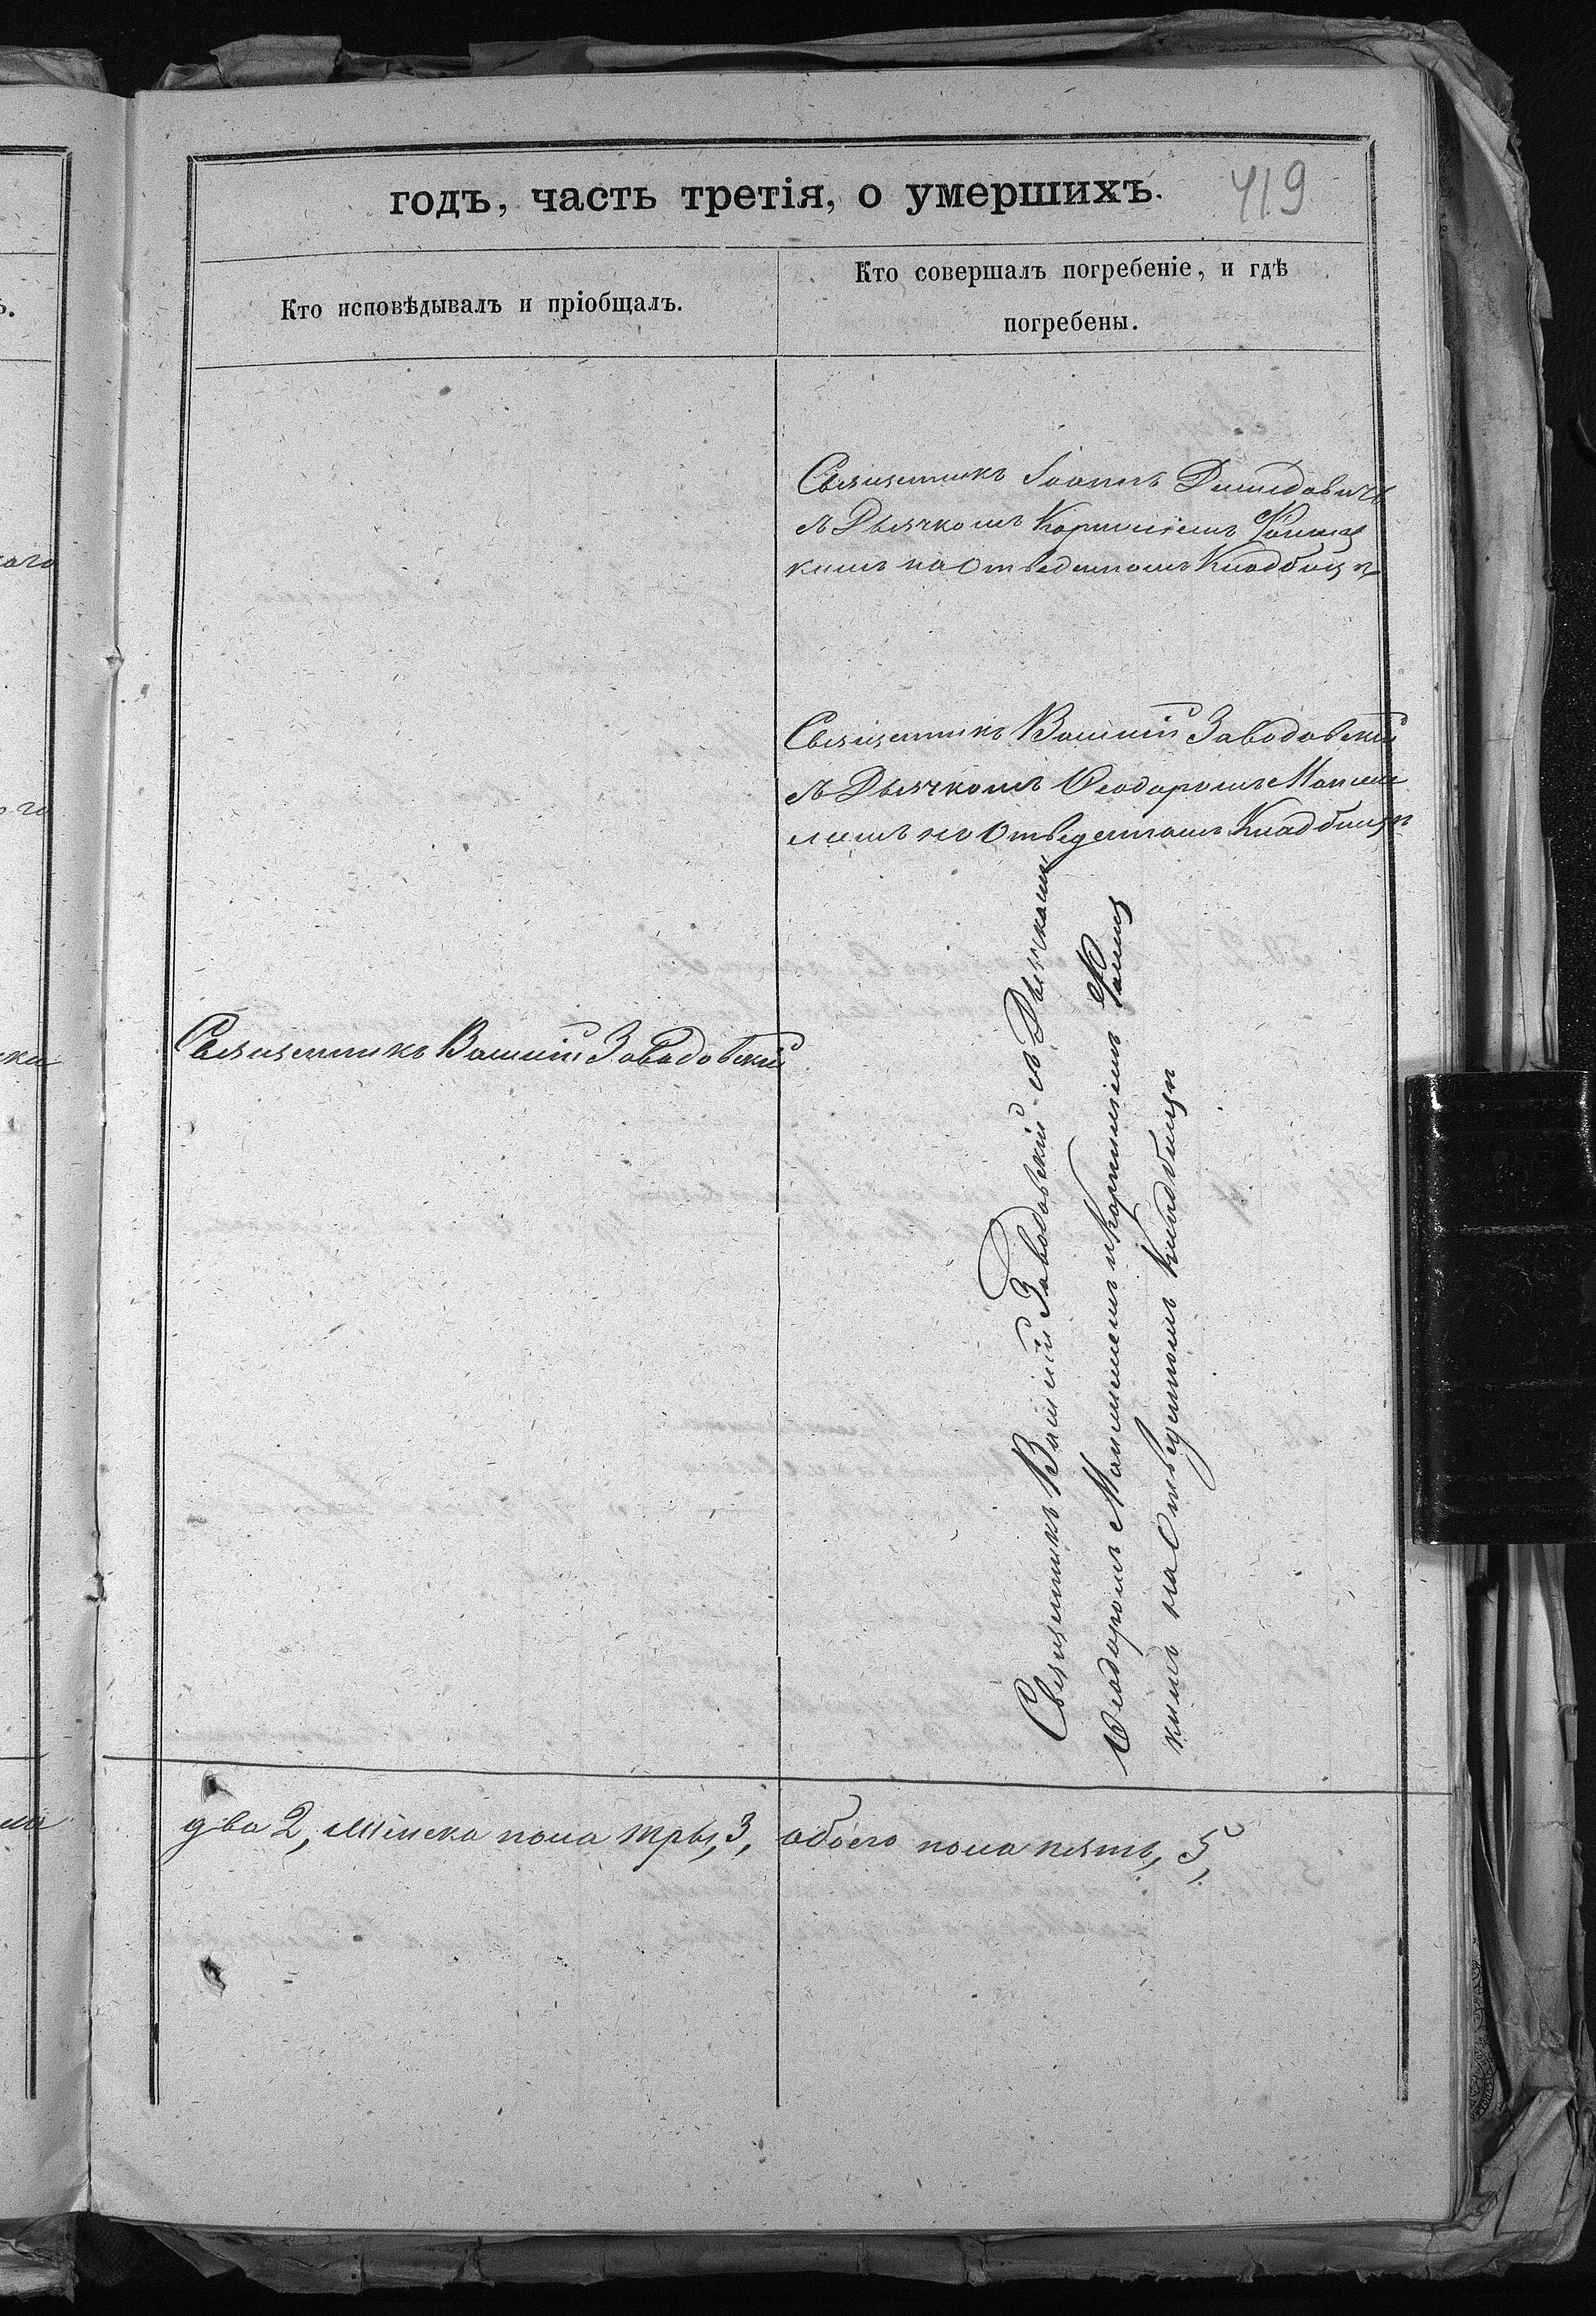 годъ, часть третія, о умершихъ.
419
Кто исповѣдывалъ и пріобщалъ.
Кто совершалъ погребеніе, и гдѣ
погребены.
Священникъ Іоаннъ Демидовичъ
съ Дьячкомъ Корниліемъ
кимъ на Отведенномъ Кладбищѣ
Священникъ Василій Заводовскій
съ Дьячкомъ Ѳеодоромъ
на Отведенномъ Кладбищѣ
Священникъ Василій Заводовскій
Священникъ Василій Заводовскій съ Дьячкомъ
Ѳеодоромъ и Корниліемъ
кимъ на Отведенномъ Кладбищѣ
ого
го
ки
два 2, женска пола тры, 3, обоего пола пять, 5,